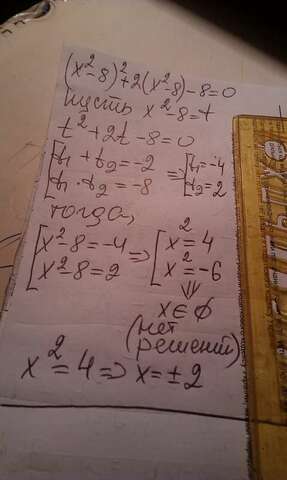 (x²-8)²+2(x²-8)-8=0
Пусть x²-8=t
t²+2t-8=0
[t₁+t₂=-2 => [t₁=-4
[t₁·t₂=-8 [t₂=2
тогда,
[x²-8=-4 => [x²=4
[x²-8=2 [x²=-6
⇓
x∈∅
(нет
решений)
x²=4 => x=±2